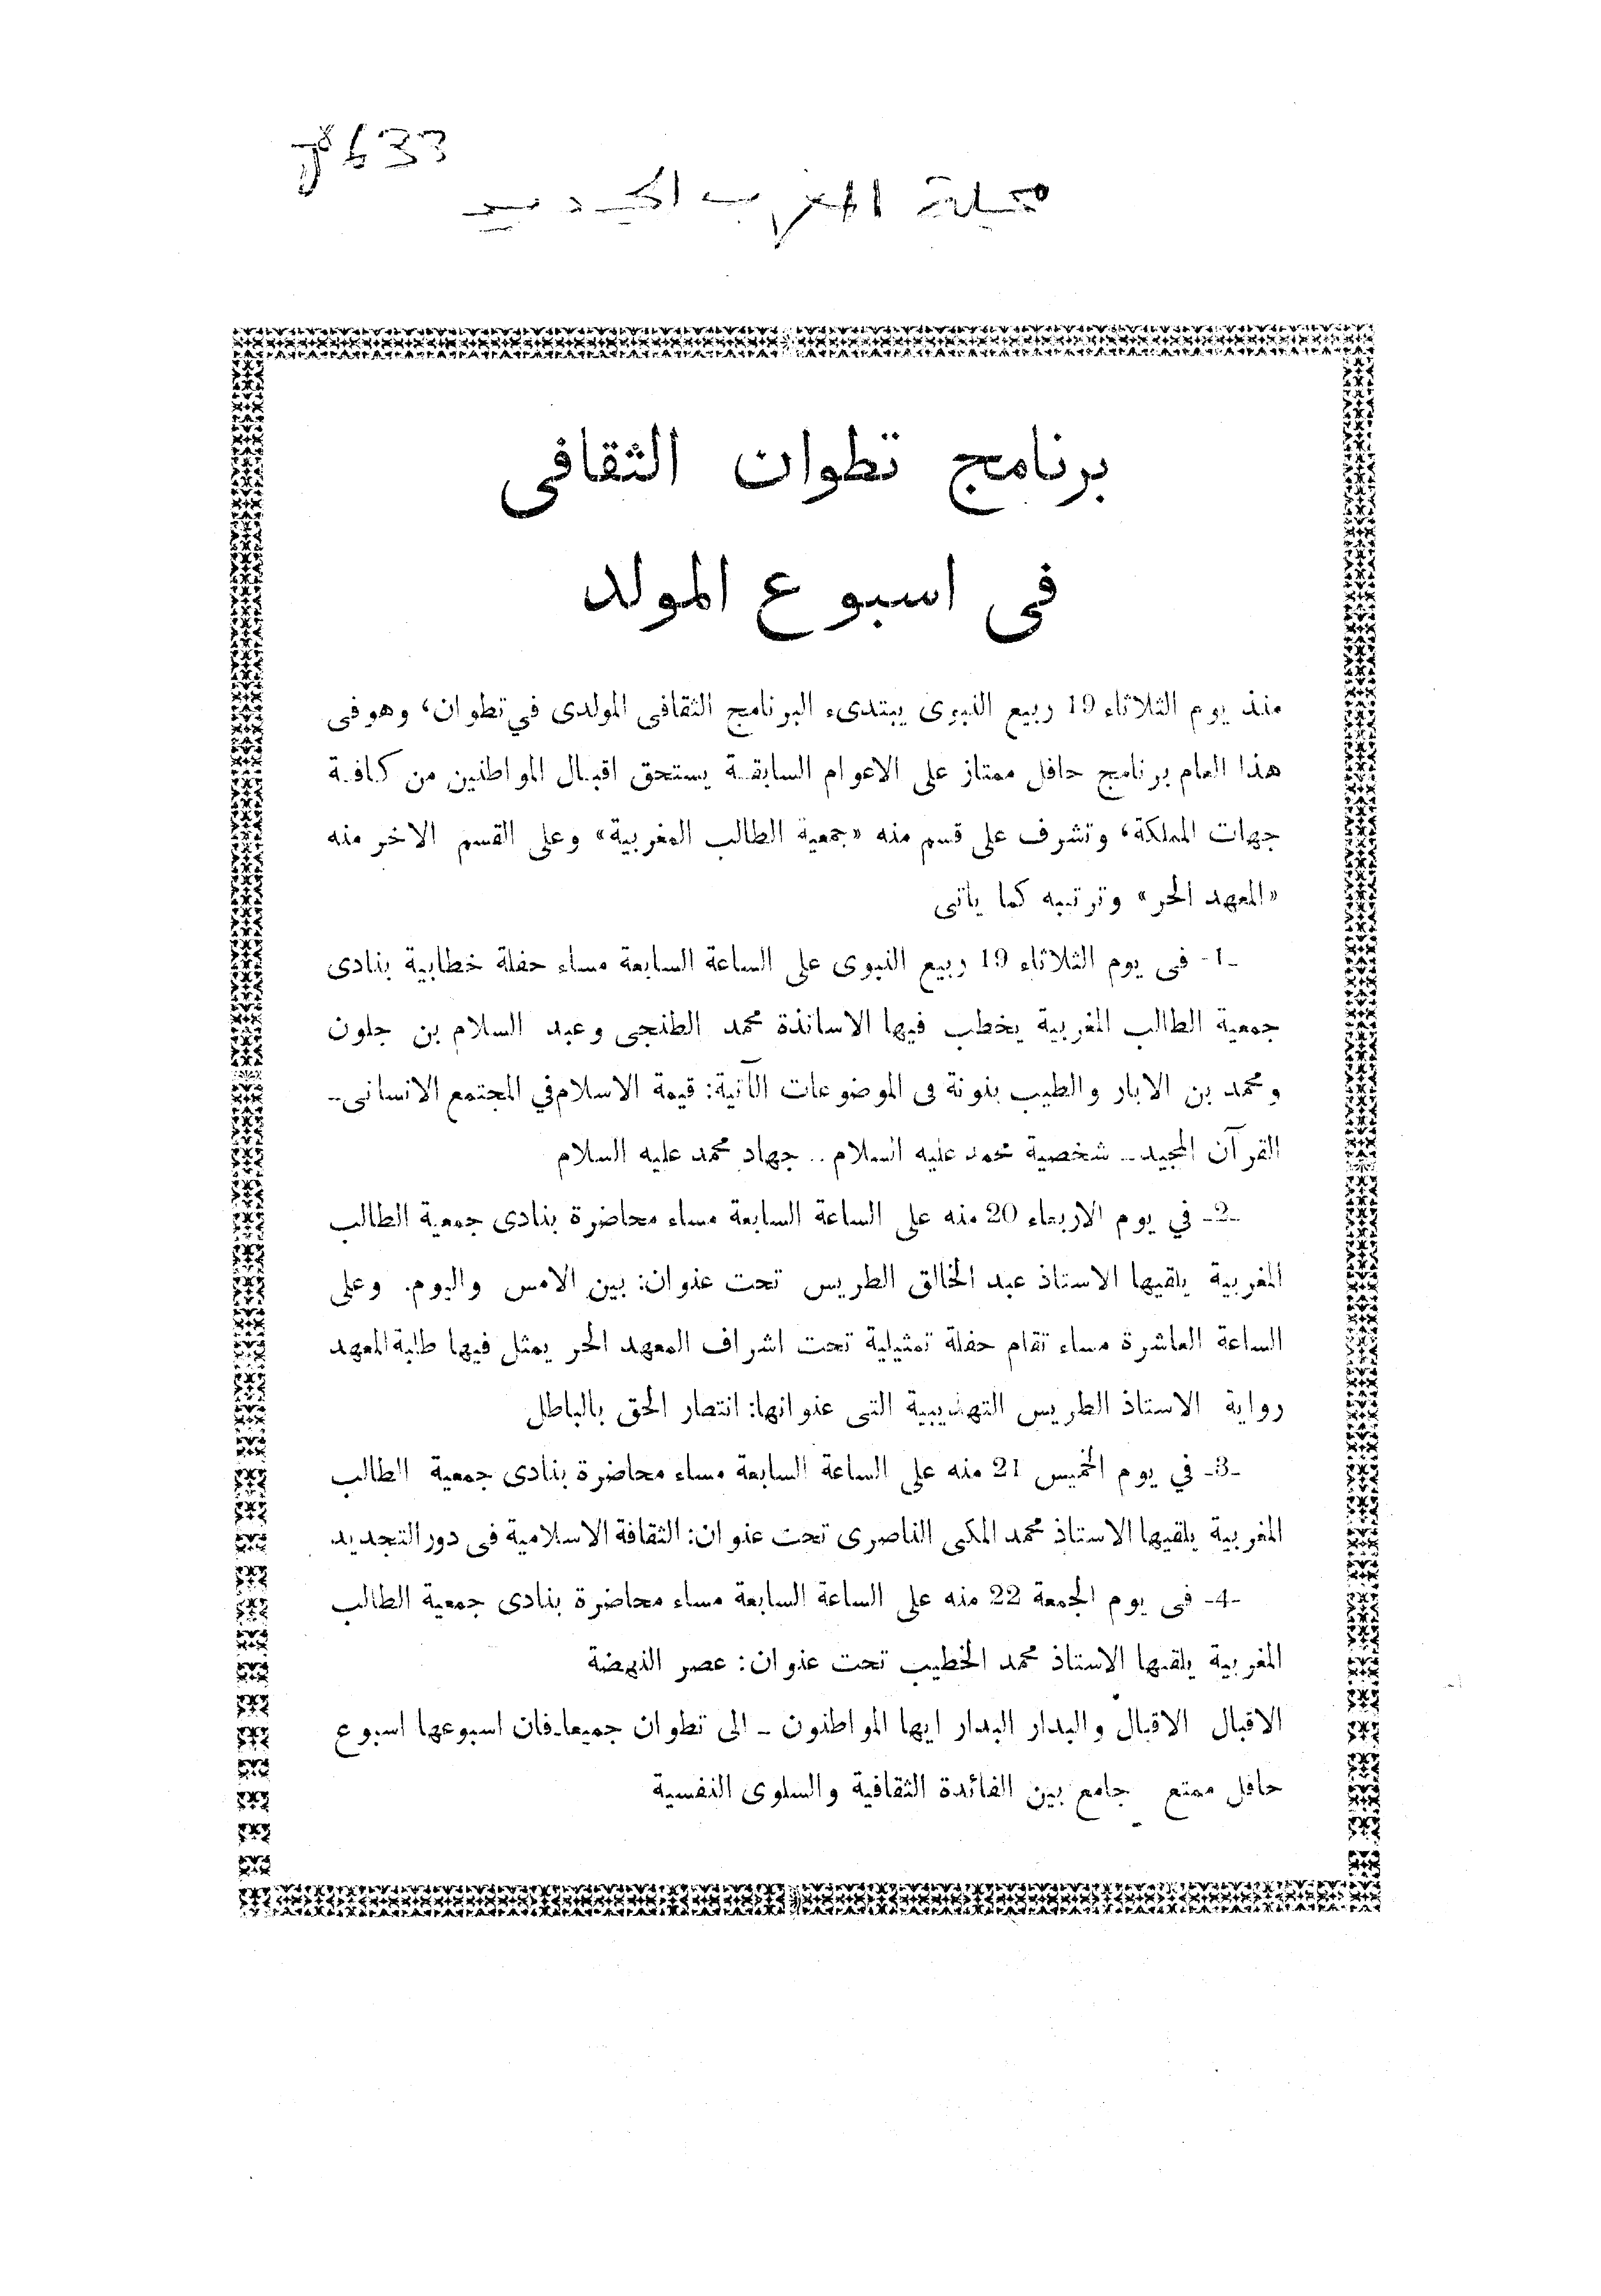 633
مجلة المغرب الجديد
برنامج تطوان الثقافى
فى اسبوع المولد
منذ يوم الثلاثاء 19 ربيع النبوى يبتدىء البرنامج الثقافى المولدى في تطوان، وهو فى
هذا العام برنامج حافل ممتاز على الاعوام السابقة يستحق اقبال المواطنين من كافة
جهات المملكة، وتشرف على قسم منه «جمعية الطالب المغربية» وعلى القسم الاخر منه
«المعهد الحر» وترتيبه كما ياتى
-1- فى يوم الثلاثاء 19 ربيع النبوى على الساعة السابعة مساء حفلة خطابية بنادى
جمعية الطالب المغربية يخطب فيها الاساتذة محمد الطنجى وعبد السلام بن جلون
ومحمد بن الابار والطيب بنونة فى الموضوعات الآتية: قيمة الاسلام في المجتمع الانسانى-
القرآن المجيد- شخصية محمد عليه السلام.. جهاد محمد عليه السلام
-2- في يوم الاربعاء 20 منه على الساعة السابعة مساء محاضرة بنادى جمعية الطالب
المغربية يلقيها الاستاذ عبد الخالق الطريس تحت عنوان: بين الامس واليوم. وعلى
الساعة العاشرة مساء تقام حفلة تمثيلية تحت اشراف المعهد الحر يمثل فيها طلبة المعهد
رواية الاستاذ الطريس التهذيبية التى عنوانها: انتصار الحق بالباطل
-3- في يوم الخميس 21 منه على الساعة السابعة مساء محاضرة بنادى جمعية الطالب
المغربية يلقيها الاستاذ محمد المكى الناصرى تحت عنوان: الثقافة الاسلامية فى دور التجديد
-4- فى يوم الجمعة 22 منه على الساعة السابعة مساء محاضرة بنادى جمعية الطالب
المغربية يلقيها الاستاذ محمد الخطيب تحت عنوان: عصر النهضة
الاقبال الاقبال والبدار البدار ايها المواطنون - الى تطوان جميعا-فان اسبوعها اسبوع
حافل ممتع جامع بين الفائدة الثقافية والسلوى النفسية